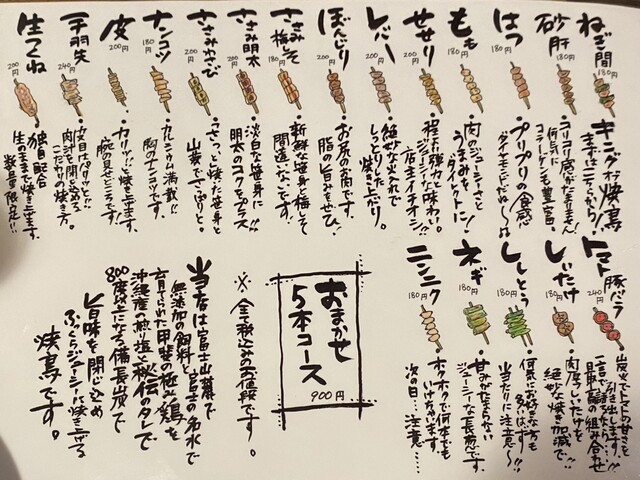 ねぎ間
180円
キング オブ 焼鳥
まずはこっちから!!
砂肝
180円
コリコリ感がたまりません!
何気に
コラーゲンも豊富。
はつ
180円
プリプリの食感
ダイヤモンドだね〜
もも
180円
肉のジューシーさと
うまみを
ダイレクトに!
せせり
200円
程よい弾力と
ジューシーな味わい。
店主イチオシ!!
レバー
200円
絶妙な火入れで
しっとりとした
焼き上がり。
ぼんじり
200円
お尻のお肉です。
脂の旨みをぜひ!
ささみ
梅しそ
180円
新鮮な笹身に梅して
間違いないです!
ささみ明太
200円
淡白な笹身に!!
明太のコクをプラス
ささみわさび
200円
さっと焼いた笹身と
山葵でさっぱりと。
ナンコツ
180円
カルシウム満載!!
胸のナンコツです。
皮
200円
カリッ!と焼き上げます。
腕の見せどころです!
手羽先
240円
皮目はパリッ!と
肉汁を閉じ込める
こだわりの焼き方。
生つくね
200円
独自配合
生のままで焼き上げます。
数量限定!!
トマト豚バラ
240円
炭火でトマトの甘さを
引き出します!!
最高の組み合わせ
しいたけ
180円
肉厚しいたけを
絶妙な焼き加減で!!
ししとう
180円
何気にお好きな方も
多いはず!!
当たりに注意〜!
ネギ
180円
甘みがたまらない
ジューシーな長葱です。
ニンニク
180円
ホクホクで何本でも
いけちゃいます。
次の日…注意……
おまかせ
5本コース
900円
※全て税込みのお値段です。
当店は富士山麓で
無添加の飼料と富士の名水で
育てられた甲斐の極み鶏を
沖縄産の煎り塩と秘伝のタレで
800度以上になる備長炭で
旨味を閉じ込め
ふっくらジューシーに焼き上げる
焼鳥です。